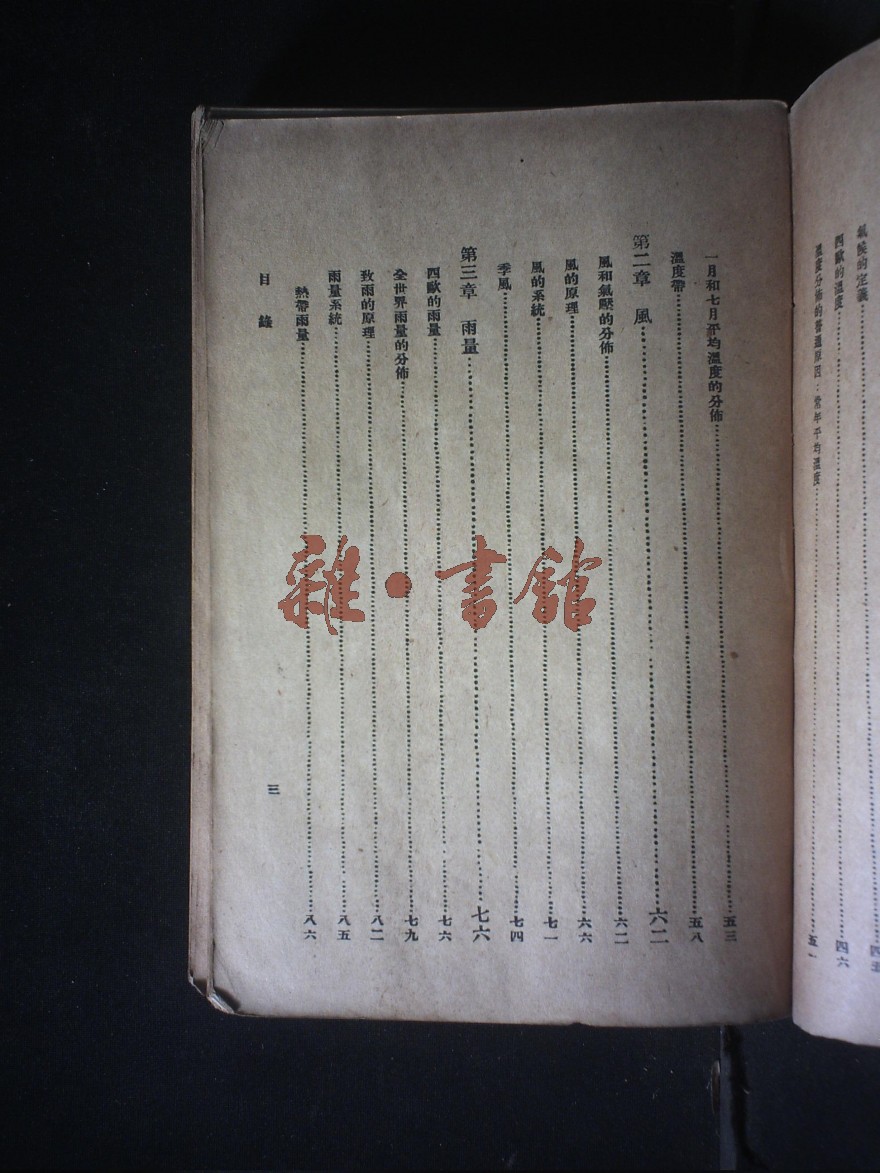 氣候的定義……四五
西歐的溫度……四六
溫度分佈的普通原因：常年平均溫度……五一
一月和七月平均溫度的分佈……五三
溫度帶……五八
第二章　風……六二
風和氣壓的分佈……六二
風的原理……六六
風的系統……七一
季風……七四
第三章　雨量……七六
西歐的雨量……七六
全世界雨量的分佈……七九
致雨的原理……八二
雨量系統……八五
熱帶雨量……八六
目錄
三
雜·書館